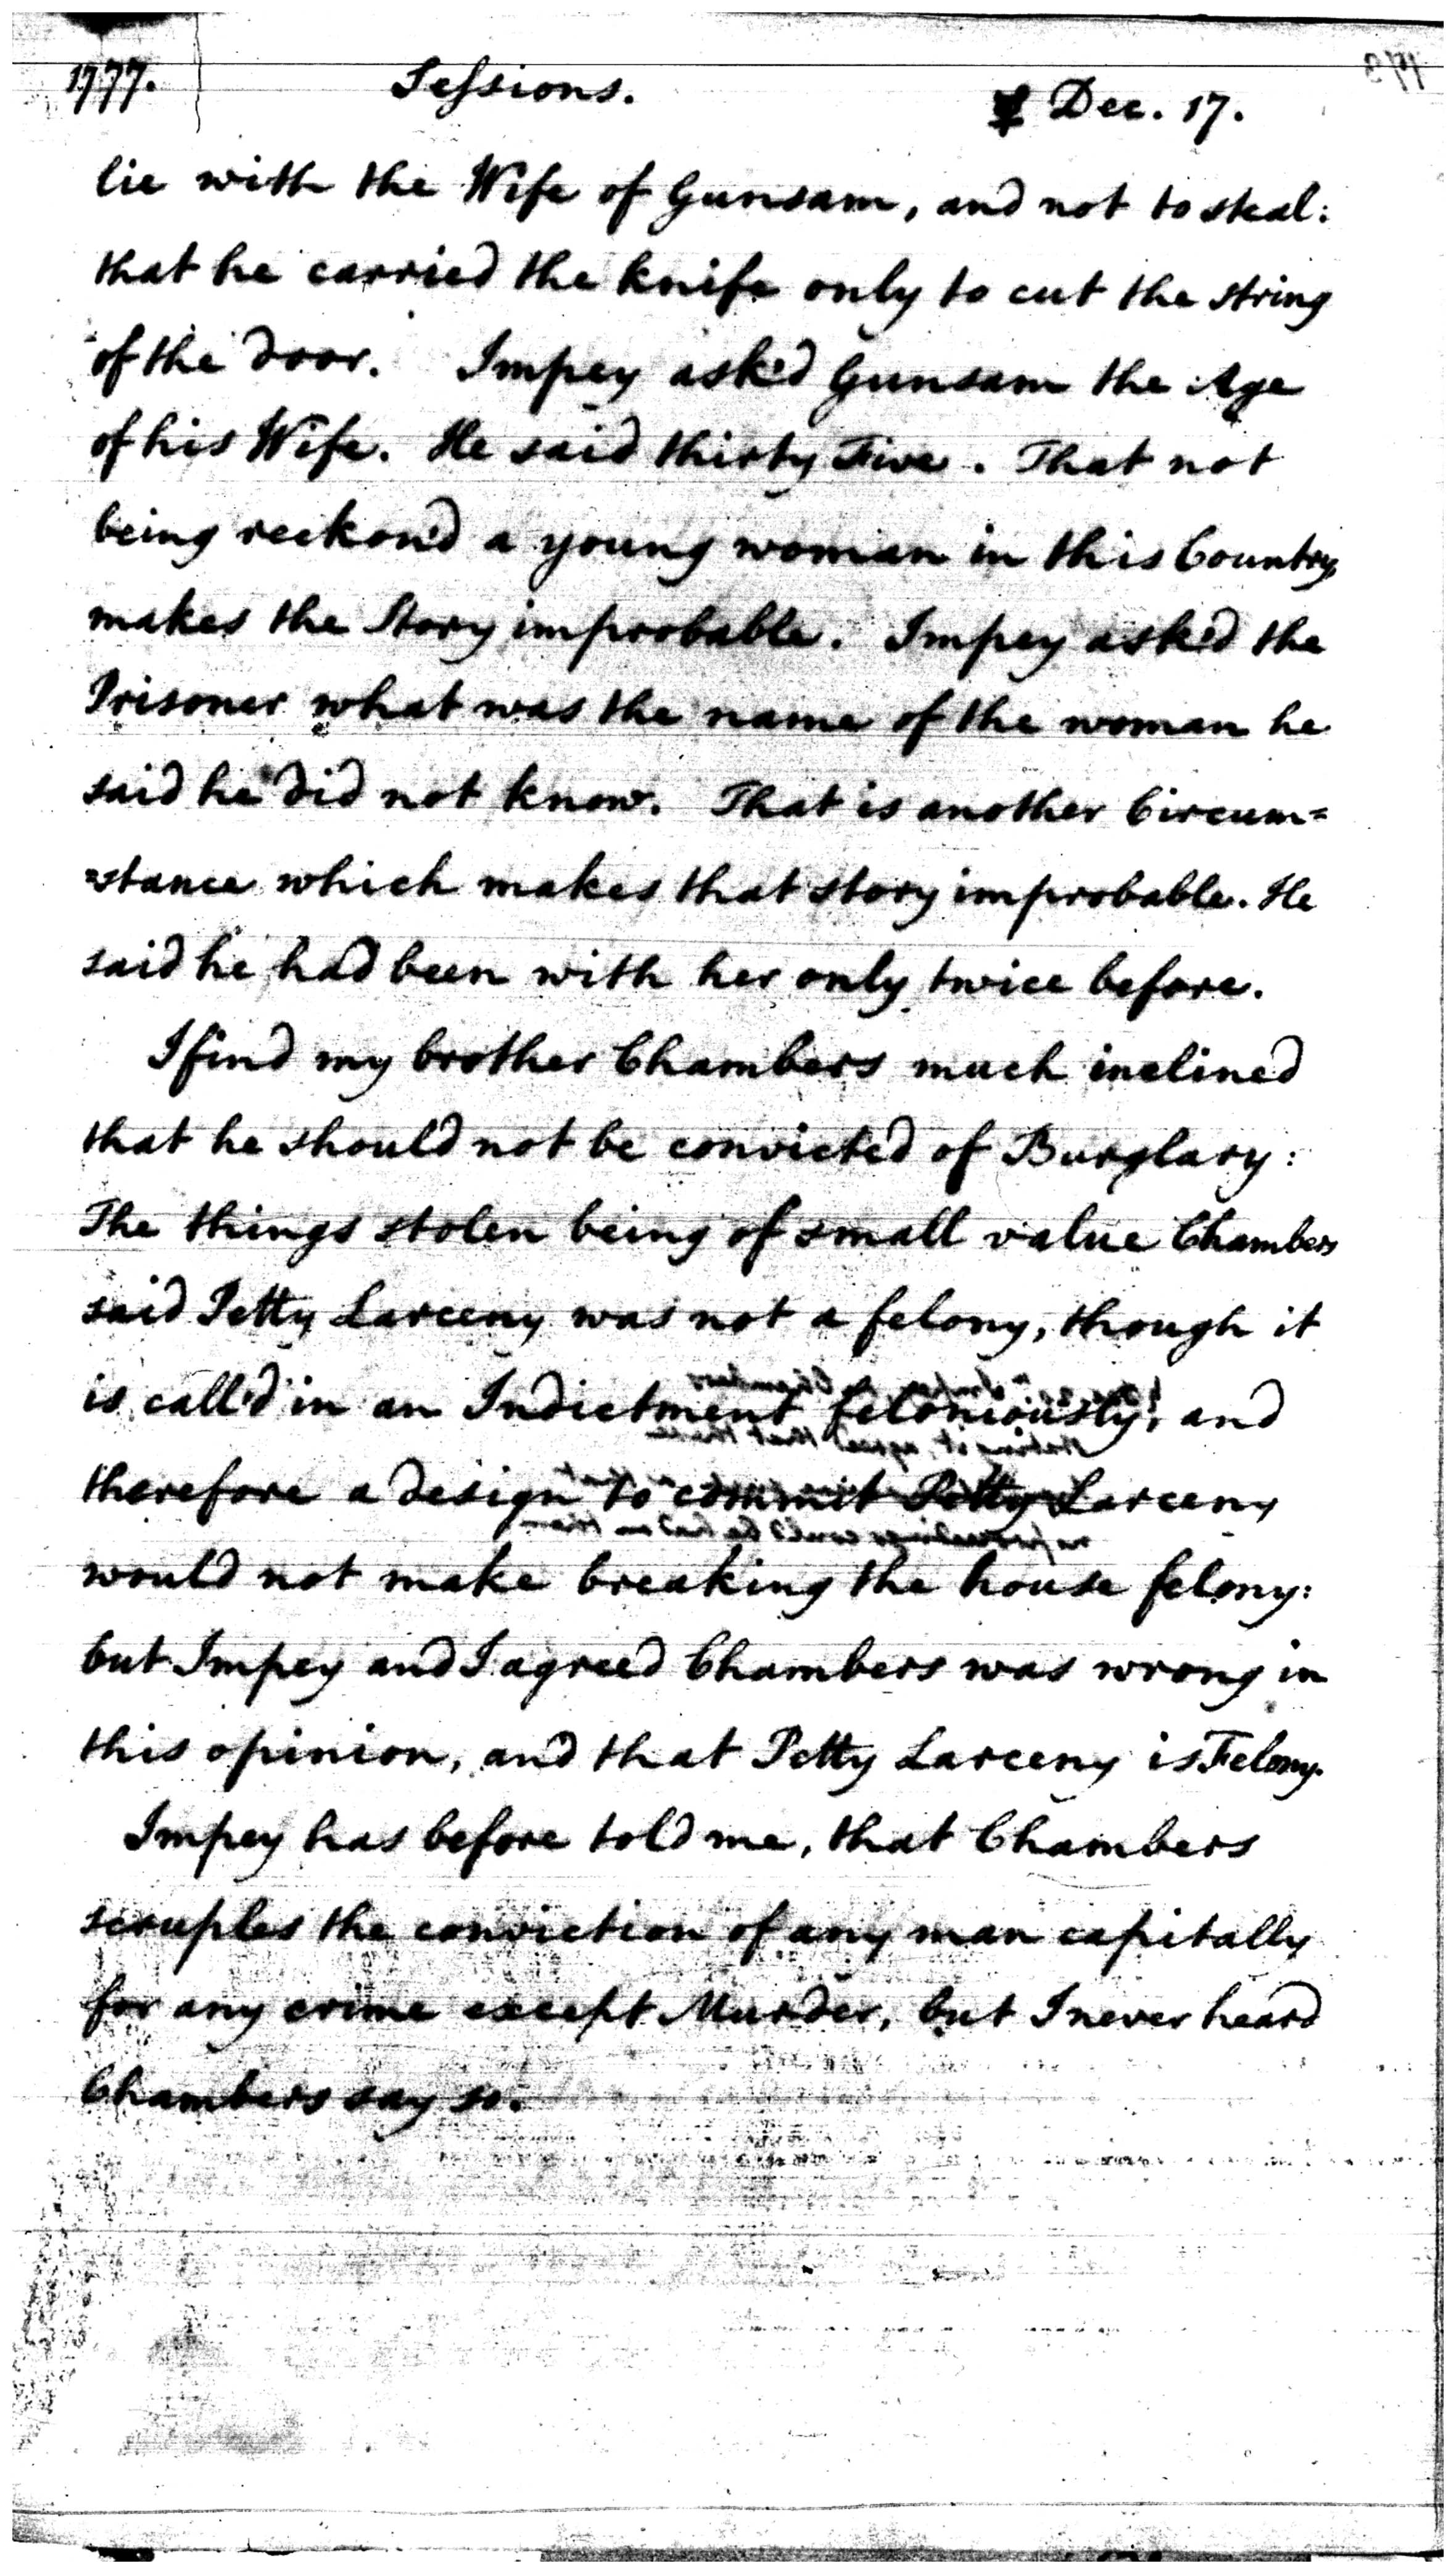 1777. Sessions. ☿ Dec. 17.
lie with the Wife of Gunsam, and not to steal:
that he carried the knife only to cut the string
of the door. Impey ask'd Gunsam the Age
of his Wife. He said thirty Five. That not
being reckon'd a young woman in this Country,
makes the Story improbable. Impey ask'd the
Prisoner what was the name of the woman he
said he did not know. That is another Circum=
=stance which makes that story improbable. He
said he had been with her only twice before.
I find my brother Chambers much inclined
that he should not be convicted of Burglary:
The things stolen being of small value Chambers
said Petty Larceny was not a felony, though it
is call'd in an Indictment feloniously, and
therefore a design to commit Petty Larceny
would not make breaking the house felony:
but Impey and I agreed Chambers was wrong in
this opinion, and that Petty Larceny is Felony.
Impey has before told me, that Chambers
scruples the conviction of any man capitally
for any crime except Murder, but I never heard
Chambers say so.